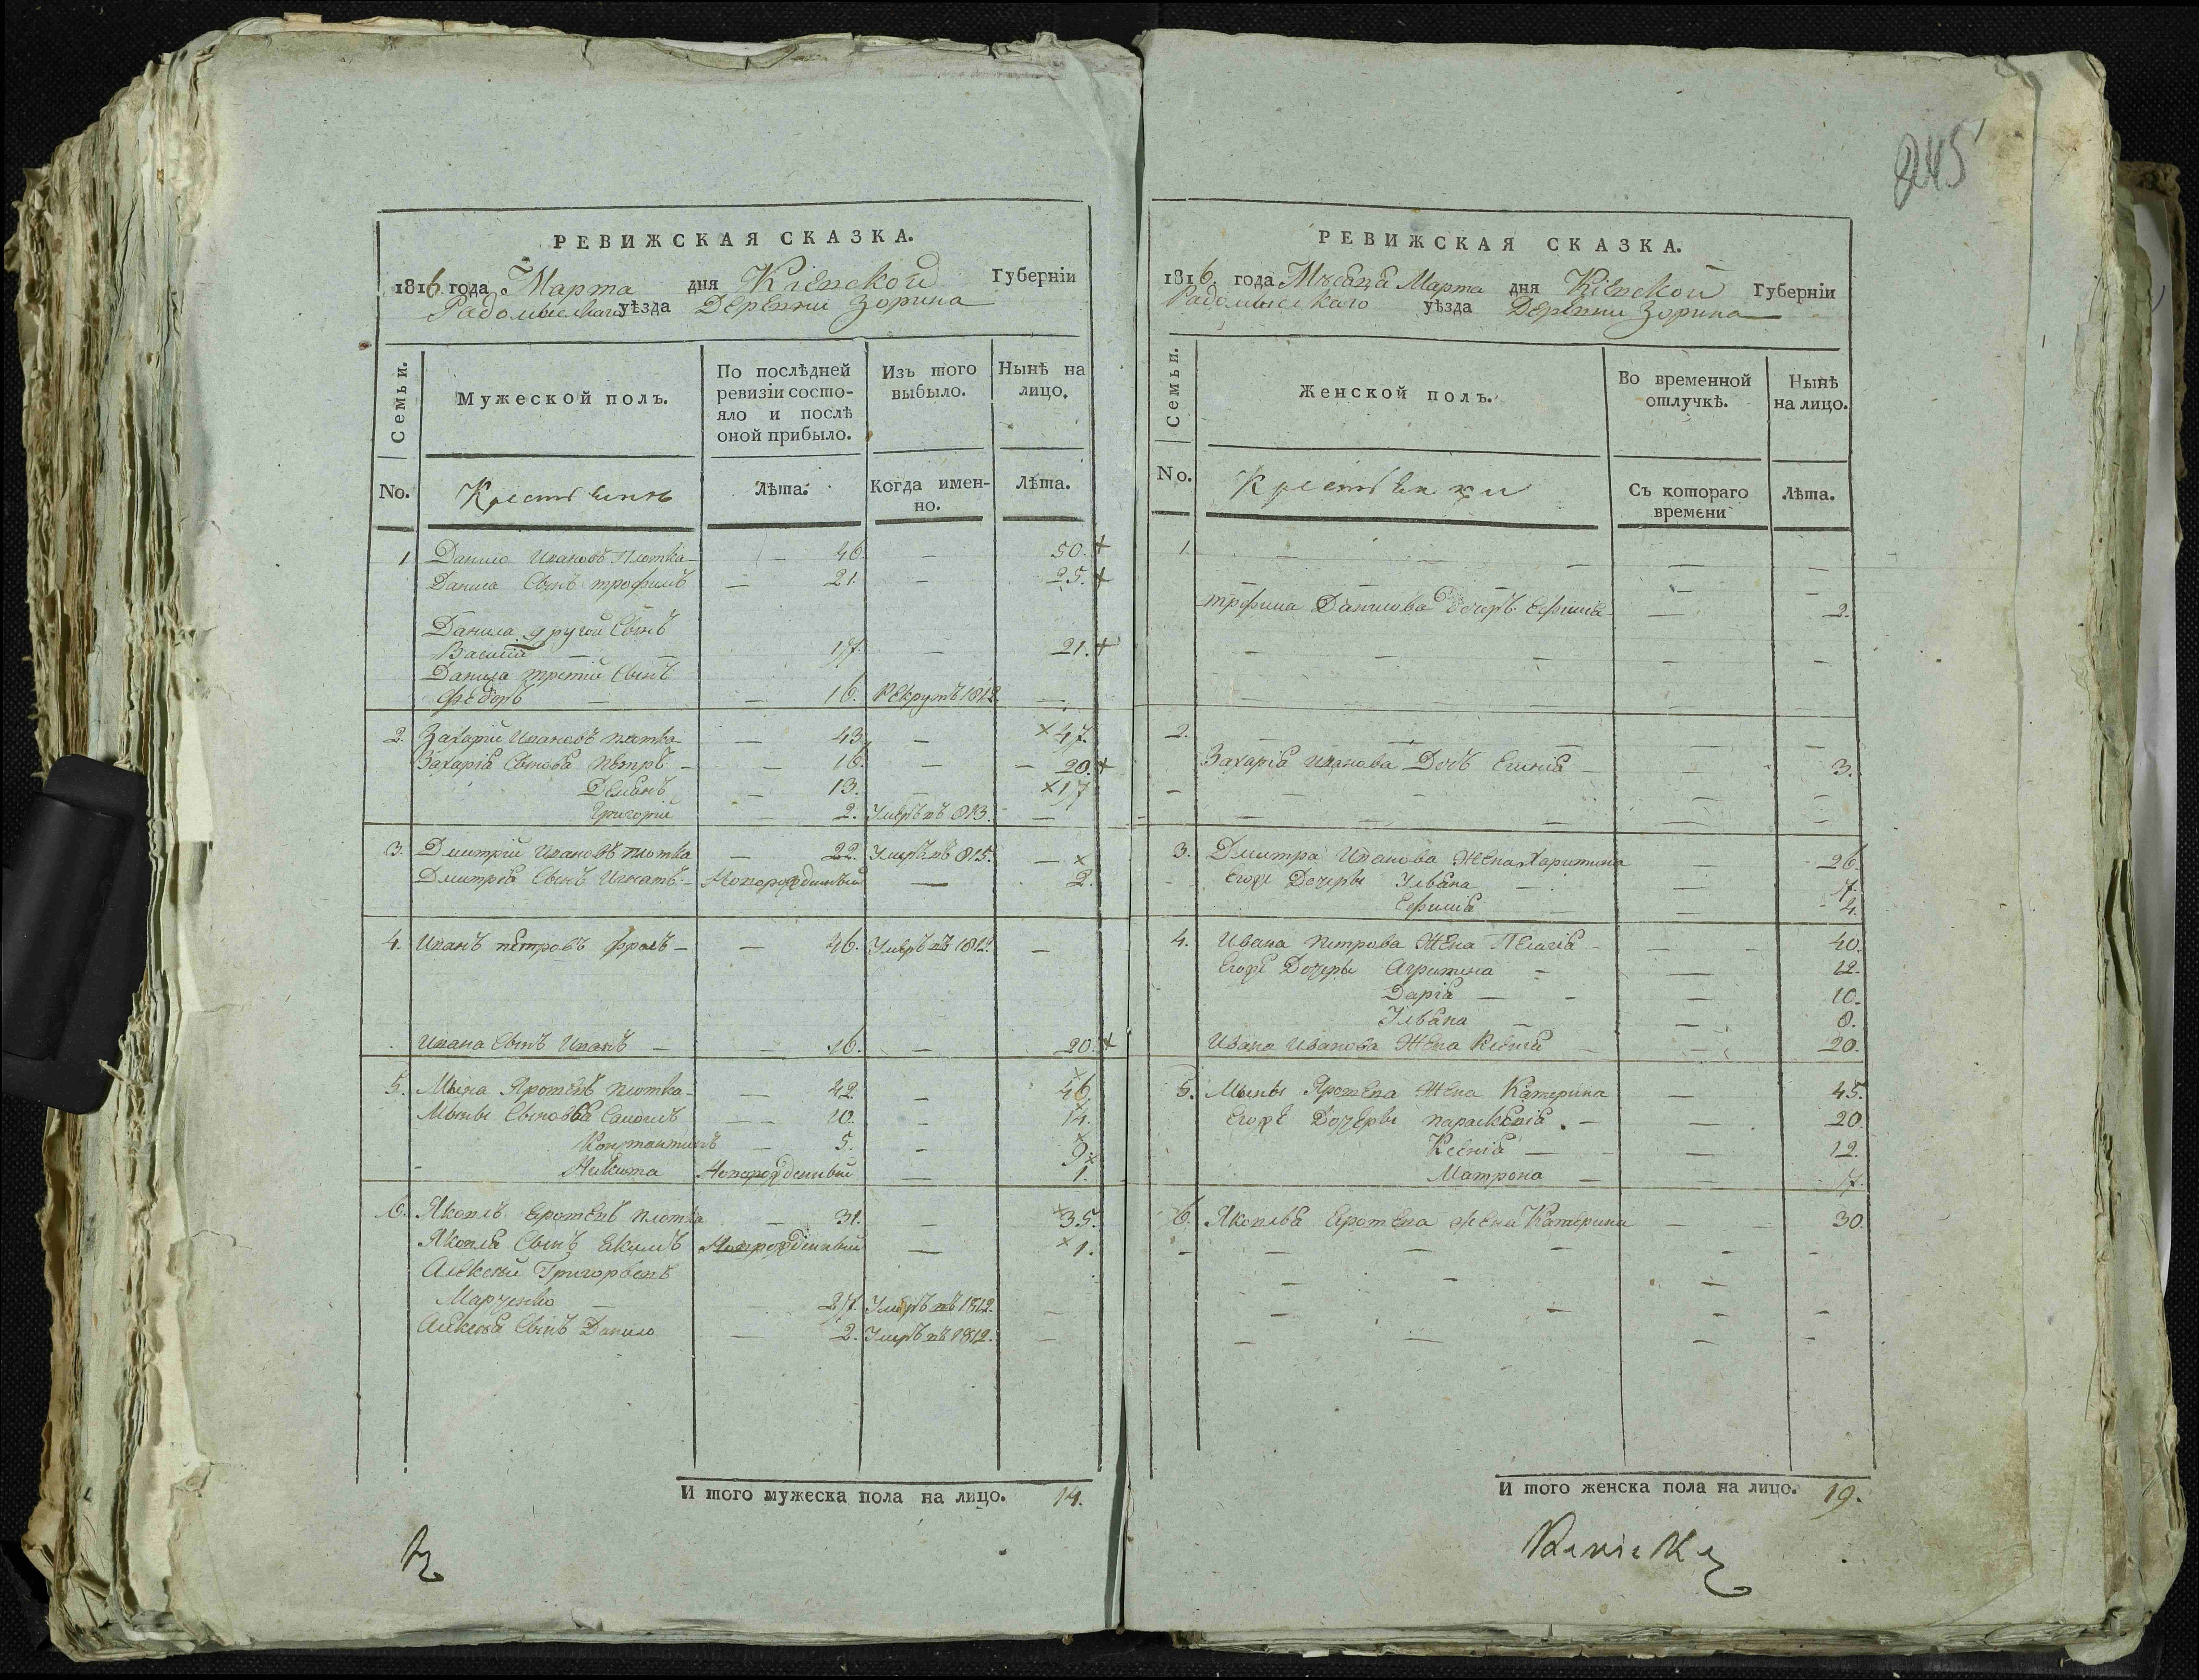 245
РЕВИЖСКАЯ СКАЗКА.
1816 года Марта дня Кіевской Губерніи
Радомысльскаго уѣзда Деревни Зорина
Семьи.
Мужеской полъ.
По послѣдней ревизіи состояло и послѣ оной прибыло.
Изъ того выбыло.
Нынѣ на лицо.
No.
Крестьянъ
Лѣта.
Когда именно.
Лѣта.
1. Данило Ивановъ Плотка — 46. — 50. +
Данила Сынъ трофимъ — 21. — 25. +
Данила другой Сынъ
Василій — 17. — 21. +
Данила третій Сынъ
Федоръ — 16. Рекрутъ 1812. —
2. Захарій Ивановъ плотка — 43. — × 47.
Захарія Сыновья Петръ — 16. — 20. +
Демянъ — 13. — × 17
Григорій — 2. Умеръ въ 813. —
3. Дмитрій Ивановъ плотка — 22. Умеръ въ 815. — ×
Дмитрія Сынъ Игнатъ — Новорожденный — 2.
4. Иванъ петровъ фролъ — 46. Умеръ въ 1812. —
Ивана Сынъ Иванъ — 16. — 20. +
5. Мина Яротенъ плотка — 42. — × 46.
Мины Сыновья Самоилъ — 10. — 14.
Константинъ — 5. — × 9.
Никита Новорожденный — × 1.
6. Яковъ Еротенъ плотка — 31. — × 35.
Якова Сынъ Екимъ Новорожденный — × 1.
Алексей Григорьевъ
Марченко — 27. Умеръ въ 1812. —
Алексея Сынъ Данило — 2. Умеръ въ 1812. —
И того мужеска пола на лицо. 14.
РЕВИЖСКАЯ СКАЗКА.
1816 года Мѣсяца Марта дня Кіевской Губерніи
Радомысльскаго уѣзда Деревни Зорина
Семьи.
Женской полъ.
Во временной отлучкѣ.
Нынѣ на лицо.
No.
Крестьянки
Съ котораго времени
Лѣта.
1. — — —
Данилова дочеръ Ефимія — 2.
2. — — —
Захарія Иванова Дочь — 3.
3. Дмитра Иванова Жена Харитина — 26.
Егоже Дочеры Ульяна — 7.
Ефимія — 4.
4. Ивана Петрова Жена Пелагія — 40.
Егоже Дочеры Агрипина — 12.
Дарія — 10.
Ульяна — 8.
Ивана Иванова Жена Ксенія — 20.
5. Мины Яротена Жена Катерина — 45.
Егоже Дочеры параскевія — 20.
Ксенія — 12.
Матрона — 7.
6. Якова Еротена жена Катерина — 30.
И того женска пола на лицо. 19.